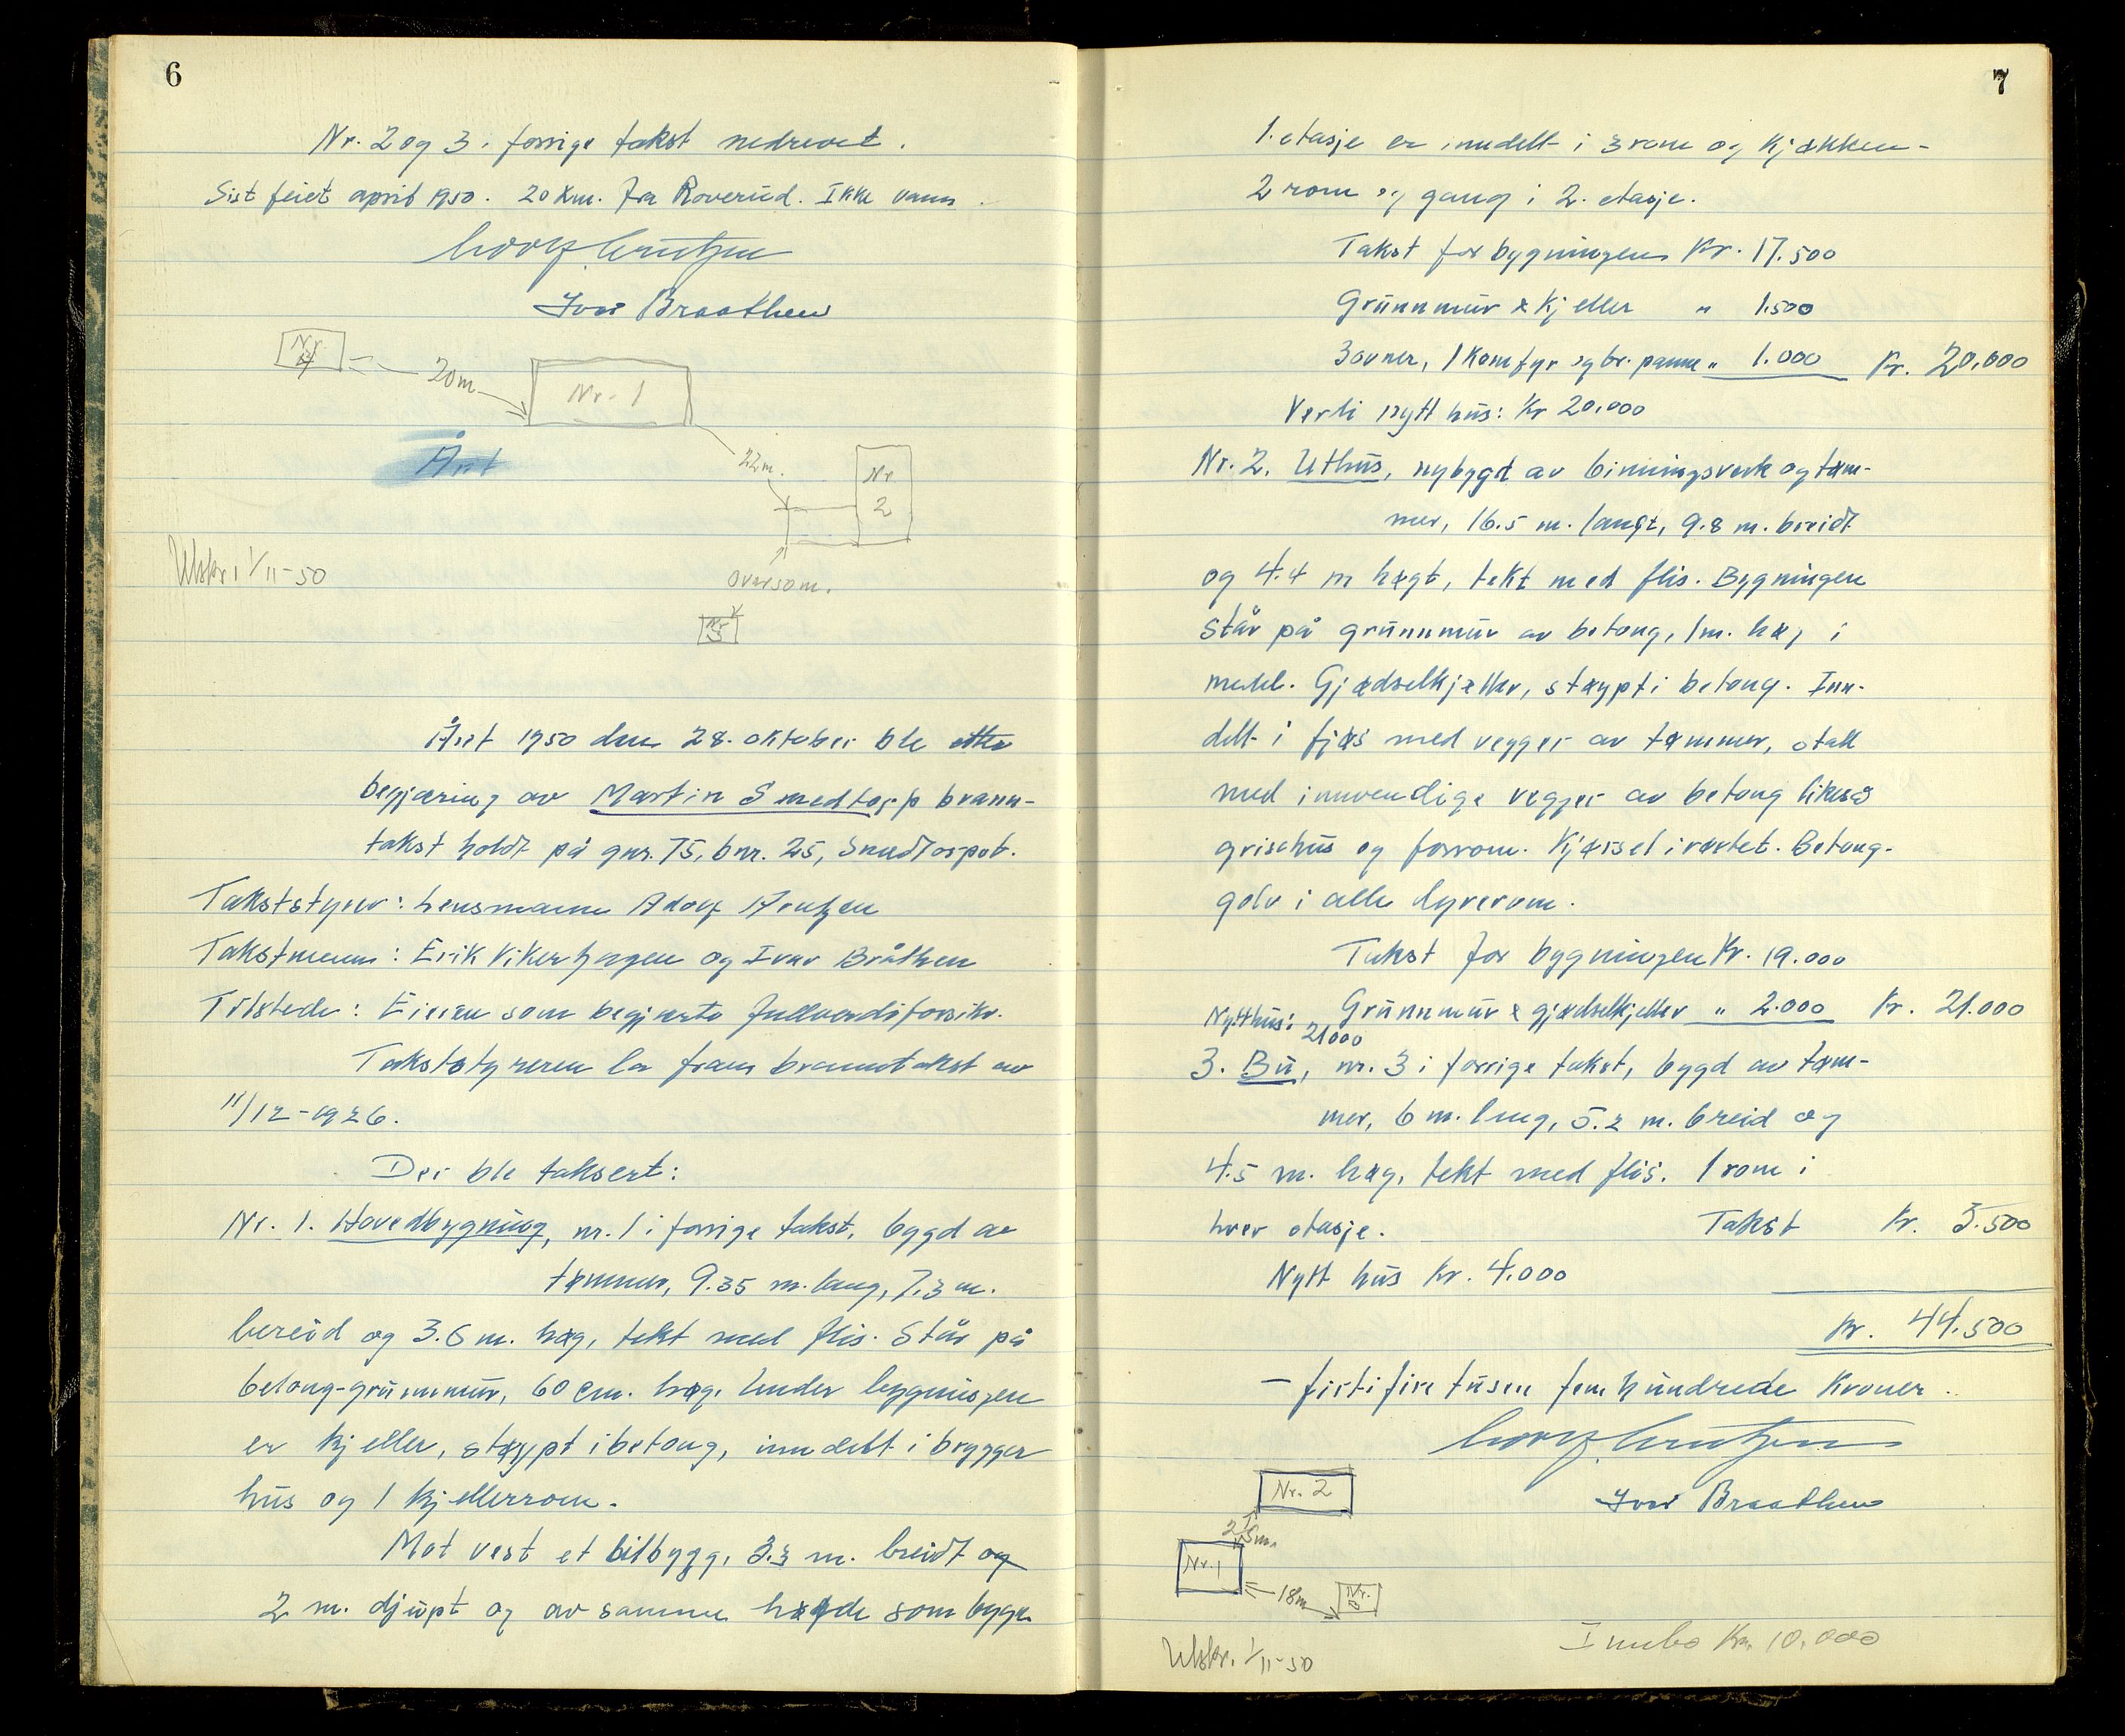 6
Nr. 2 og 3 i forrige takst nedrevet.
Sist feiet april 1950. 20 km. fra Roverud. Ikke vann.
Ivar Braathen
Nr. 4
20 m
Nr. 1
Året
22 m.
Nr. 2
oversom.
Nr 3
Utskr. 1/11-50
Året 1950 den 28. oktober ble etter
begjæring av Martin Smedtorp brann-
takst holdt på gnr. 75, bnr. 25, Smedtorpet.
Takststyrer: Lensmann Adolf Arntzen
Takstmenn: Erik Vikerhagen og Ivar Bråthen
Tilstede: Eieren som begjærte fullverdiforsikr.
Takststyreren la fram branntakst av
11/12-1926.
Der ble taksert:
Nr. 1. Hovedbygning, nr. 1 i forrige takst, bygd av
tømmer, 9.35 m. lang, 7.3 m.
breid og 3.6 m. høg, tekt med flis. Står på
betong-grunnmur, 60 cm. høg. Under bygningen
er kjeller, støypt i betong, inndelt i brygger
hus og 1 kjellerrom.
Mot vest et tilbygg, 3.3 m. breidt og
2 m. djupt og av samme høgde som bygn.
7
1. etasje er inndelt i 3 rom og kjøkken -
2 rom og gang i 2. etasje.
Takst for bygningen Kr. 17.500
Grunnmur & kjeller " 1.500
3 ovner, 1 komfyr og br. panne " 1.000 Kr. 20.000
Verdi nytt hus: Kr 20.000
Nr. 2. Uthus, nybygd av binningsverk og tøm-
mer, 16.5 m. langt, 9.8 m. breidt
og 4.4 m høgt, tekt med flis. Bygningen
står på grunnmur av betong, 1 m. høg i
medel. Gjødselkjeller, støypt i betong. Inn-
delt i fjøs med vegger av tømmer, stall
med innvendige vegger av betong likeså
grisehus og forrom. Kjørsel i røstet. Betong-
golv i alle dyrerom.
Takst for bygningen Kr. 19.000
Nytt hus: 21000 Grunnmur & gjødselkjeller " 2.000 Kr. 21.000
3. Bu, nr. 3 i forrige takst, bygd av tøm-
mer, 6 m. lang, 5.2 m. breid og
4.5 m. høg, tekt med flis. 1 rom i
hver etasje. Takst Kr. 3.500
Nytt hus Kr. 4.000
Kr. 44.500
- førtifire tusen fem hundrede kroner.
Ivar Braathen
Nr. 2
Nr. 1
18m
Nr. 3
Innbo Kr. 10.000
Utskr. 1/11-50